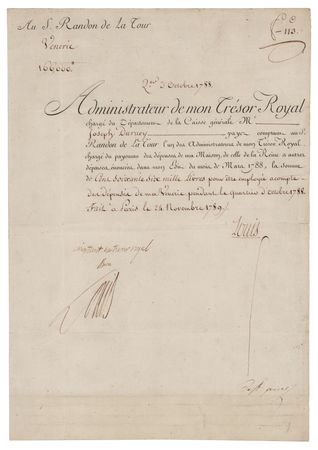 Au S. Randon de La Tour
113.
Vénerie
166000.
Qer d'Octobre 1788.
Administrateur de mon Trésor Royal
chargé du Département de la Caisse générale Mr
Joseph Durney payez comptant au S.
Randon de La Tour l'un des Administrateurs de mon Trésor Royal,
chargé du payement des dépenses de ma Maison, de celle de la Reine & autres
dépenses énoncées dans mon Edit du mois de Mars 1788, la somme
de Cent soixante six mille livres pour être employée acompte
des dépenses de ma Vénerie pendant le quartier d'Octobre 1788.
Fait à Paris le 24 Novembre 1789.
Louis
bon
Louis